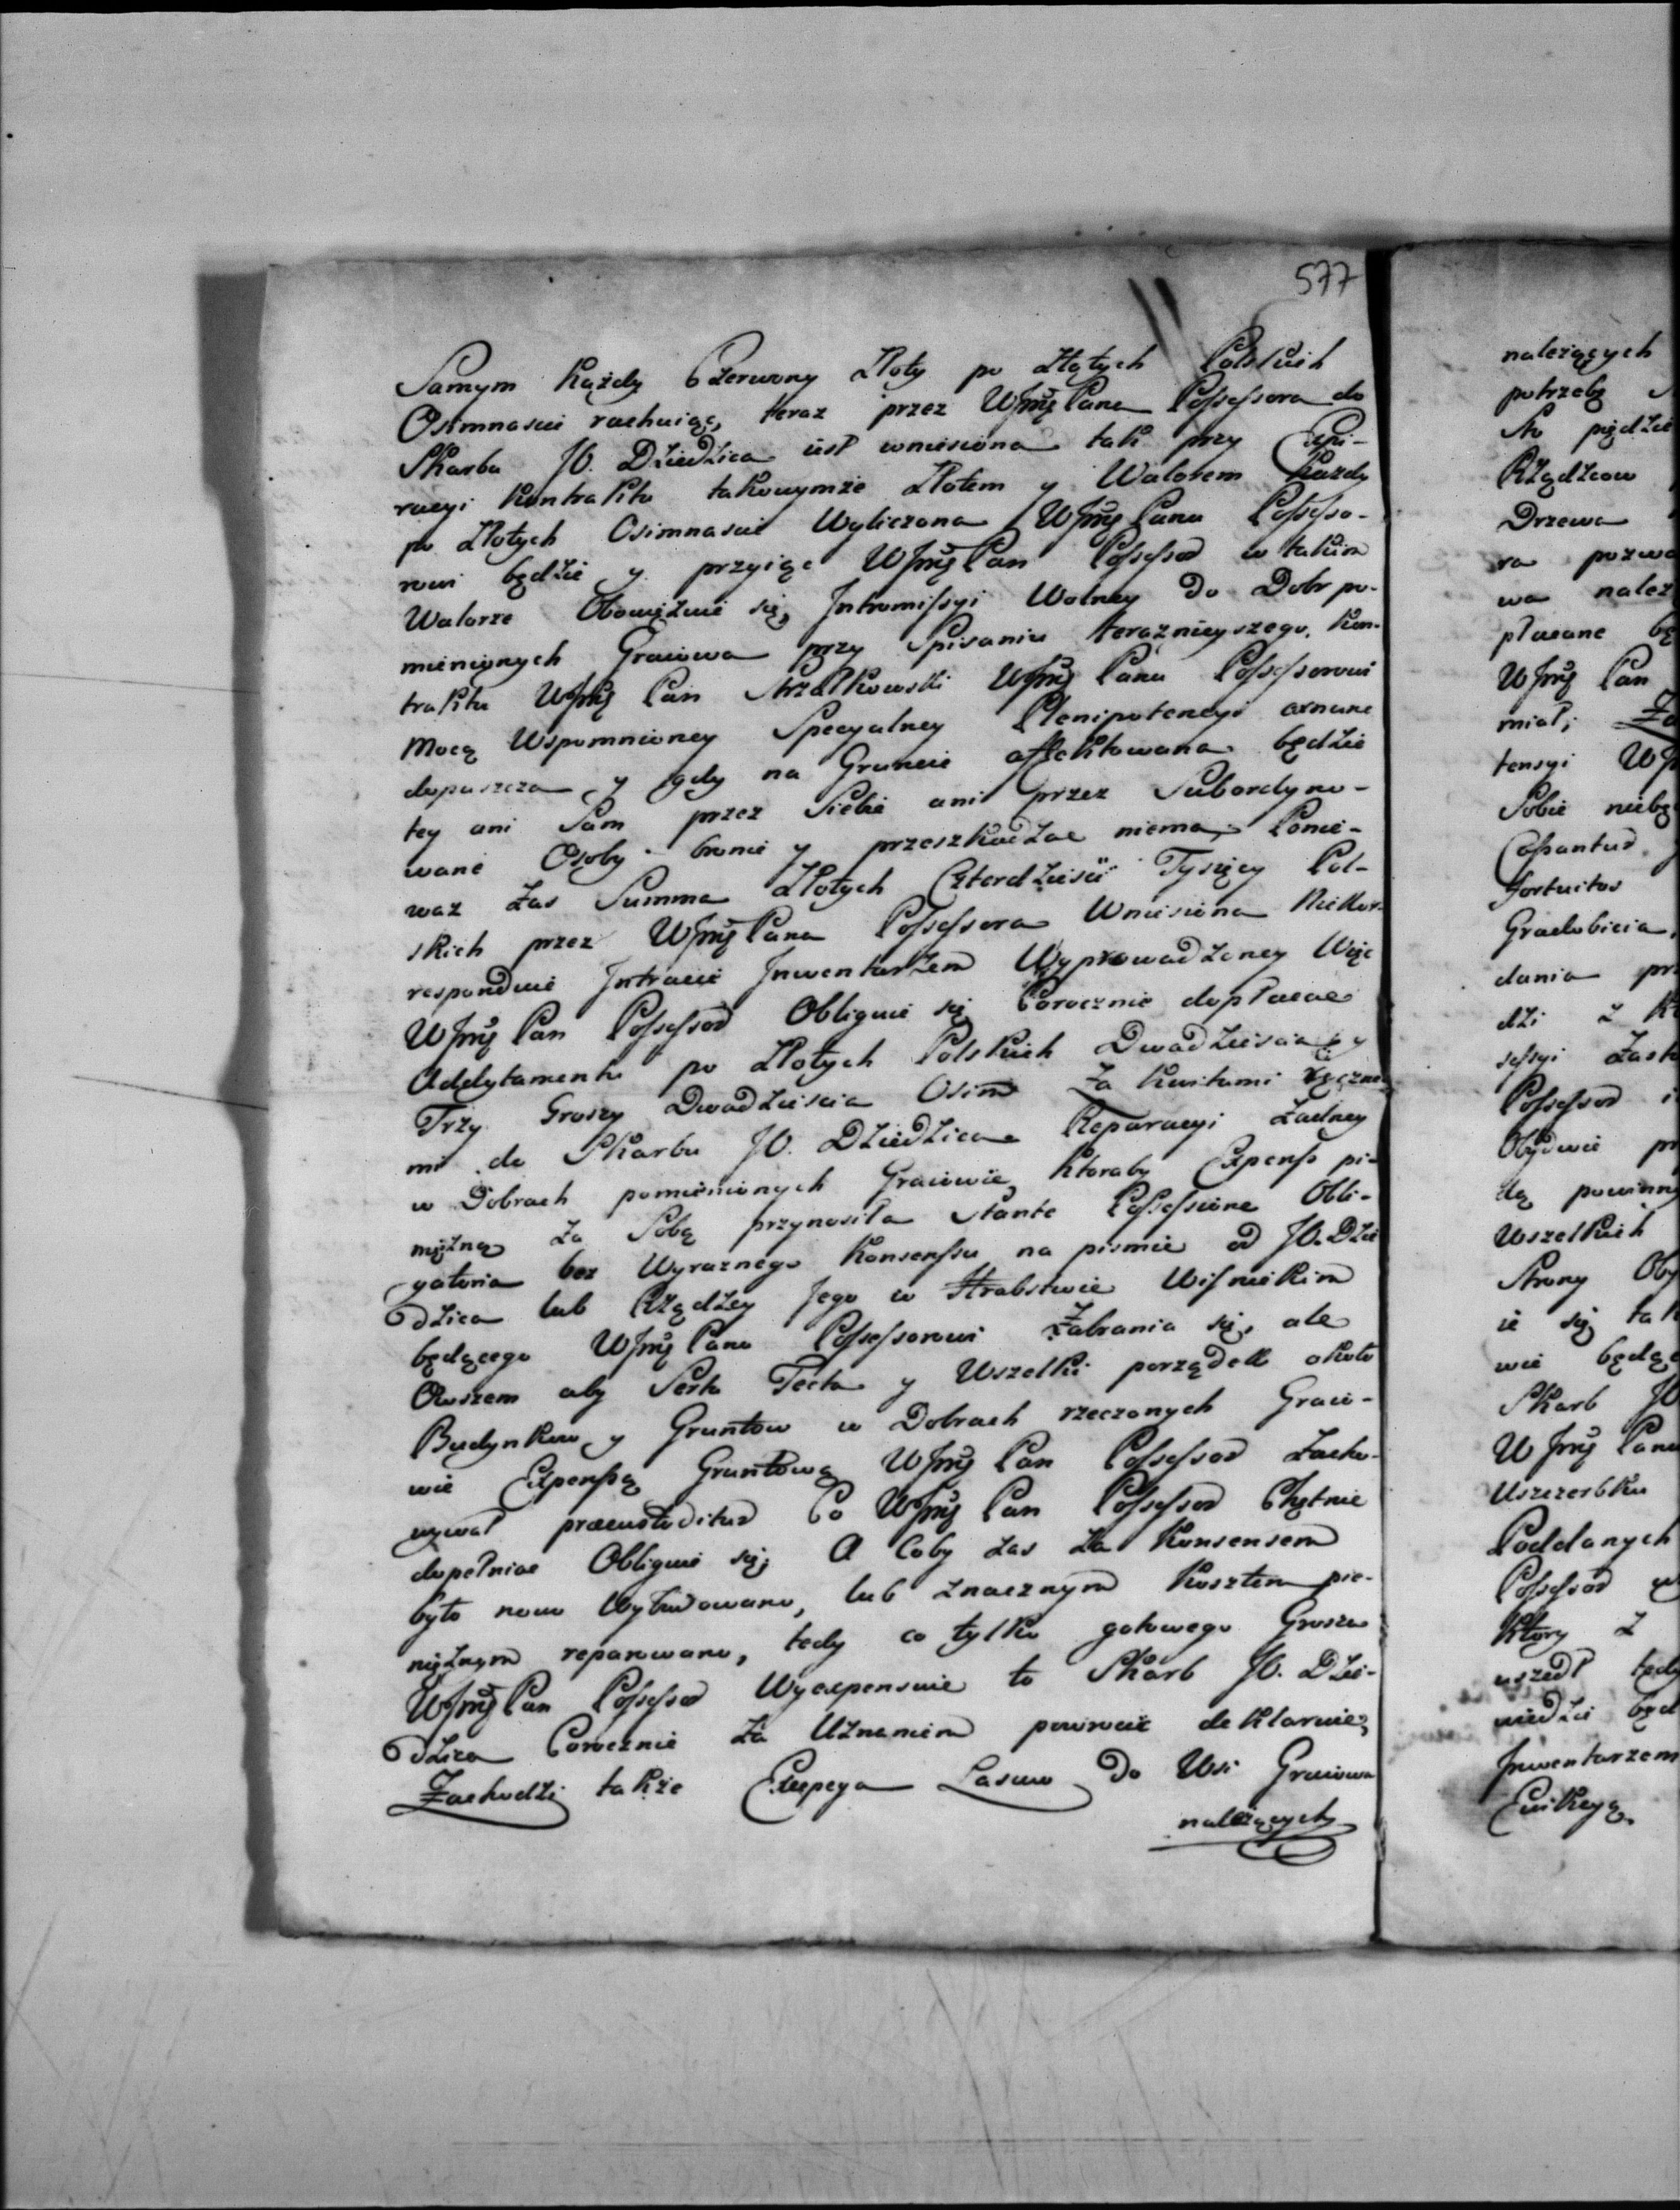 577
Samym każdy Czerwony Złoty po Złotych Polskich
Osimnascie rachuiąc, teraz przez WJmę Pana Possessora do
Skarbu JO. Dziedzica iest wniesiona tak przy Expi-
racyi Kontraktu takowymże Złotem y Walorem każdy
po Złotych Osimnascie Wyliczona WJmę Panu Possesso-
rowi będzie y przyiąc WJmę Pan Possessor w takim
Walorze Obowięzuie się, Intromissyi Wolney do Dobr po-
mienionych Graiowa przy Spisaniu teraznieyszego Kon-
traktu WJmę Pan Strzałkowski WJmę Panu Possessorowi
mocą Wspomnioney Specyalney Plenipotencyi
dopuszcza y gdy na Gruncie affektowana będzie
tey ani Sam przez Siebie ani przez Subordyno-
wane Osoby bronic y przeszkadzac niema, Ponie-
waz zas Summa Złotych Czterdziescii Tysięcy Pol-
skich przez WJmę Pana Possessora Wniesiona Niekor-
responduie Intracie Inwentarzem Wyprowadzoney Więc
WJmę Pan Possessor Obliguie się Corocznie dopłacac
Addytamentu po Złotych Polskich Dwadziescia y
Trzy Groszy Dwadziescia Osim za Kwitami ręczne
mi do Skarbu JO. Dziedzica Reparacyi żadney
w Dobrach pomienionych Graiowie, ktoraby Expens pi-
niężną za Sobą przynosiła stante Possessione Obli-
gatoria bez Wyraznego Konsensu na pismie od JO. Dzie
dzica lub Rządzcy Jego w Hrabstwie Wisnickim
będącego WJmę Panu Possessorowi Zabrania się, ale
Owszem aby Serta Tecta y Wszelki porządek około
Budynkow y Gruntow w Dobrach rzeczonych Graio-
wie Expensą Gruntową WJmę Pan Possessor Zacho-
wywał praecustoditur Co WJmę Pan Possessor Chętnie
dopełniac Obliguie się, A Coby zas za Konsensem
było nowo Wybudowano, lub znacznym kosztem pie-
niężnym reparowano, tedy co tylko gotowego Grosza
WJmę Pan Possessor Wyexpensuie to Skarb JO. Dzie-
dzica Corocznie za Uznaniem powrocic deklaruie,
Zachodzi także Excepcya Lasow do Wsi Graiowa
nalezących
należących
potrzebę
Sto
Rządzcow
Drzewa
ra pozwo
wa należ
płacane bę
WJmę Pan
miał, Za
tensyi WJ
Sobie niebę
Fortuitos
Gradobicia,
dania prz
dzi z
sessyi Zasto
Possessor i
Obydwie pr
dą powinny
Wszelkich
Strony Oby
ie się tak
wie będąc
Skarb JO
WJmę Panu
Uszczerbku
Poddanych
Possessor w
Ktory z
uszedł tedy
wiedzi będ
Inwentarzem
Ewikcyą.